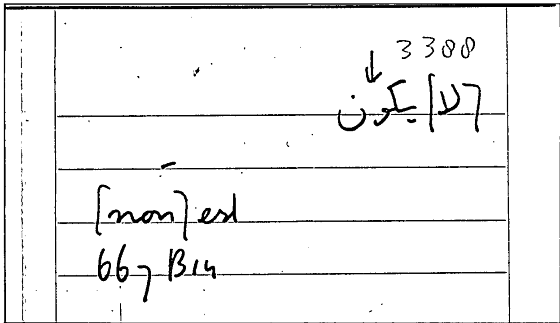 3388
[لا] يكون
[non] est
667 B14